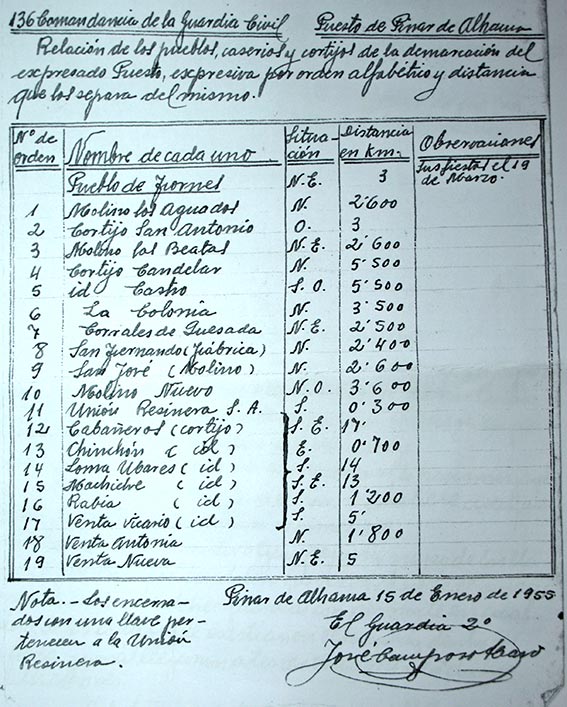 136 Comandancia de la Guardia Civil Puesto de Pinar de Alhama
Relación de los pueblos, caserios y cortijos de la demarcación del
expresado Puesto, expresiva por orden alfabético y distancia
que los separa del mismo.
Nº de orden Nombre de cada uno Situación Distancia en Km. Observaciones
Pueblo de Jornes N.E. 3 Sus fiestas el 19
de Marzo.
1 Molino los Aguados N. 2'600
2 Cortijo San Antonio O. 3
3 Molino las Beatas N.E. 2'600
4 Cortijo Candelar N. 5'500
5 id Castro S.O. 3'500
6 La Colonia N. 3'500
7 Corrales de Quesada N.E. 2'500
8 San Fernando (Fábrica) N. 2'400
9 San José (Molino) N. 2'600
10 Molino Nuevo N.O. 3'600
11 Unión Resinera S.A. S. 0'300
12 Cabañeros (cortijo) S.E. 17'
13 Chinchón (id) E. 0'700
14 Loma Ubares (id) S. 14
15 Machiche (id) S.E. 13
16 Rabia (id) S. 1'200
17 Venta Vicario (id) S. 5'
18 Venta Antonia N. 1'800
19 Venta Nueva N.E. 5
Nota.- Los encerra-
dos con una llave per-
tenecen a la Unión
Resinera.
Pinar de Alhama 15 de Enero de 1955
El Guardia 2º
José Campos